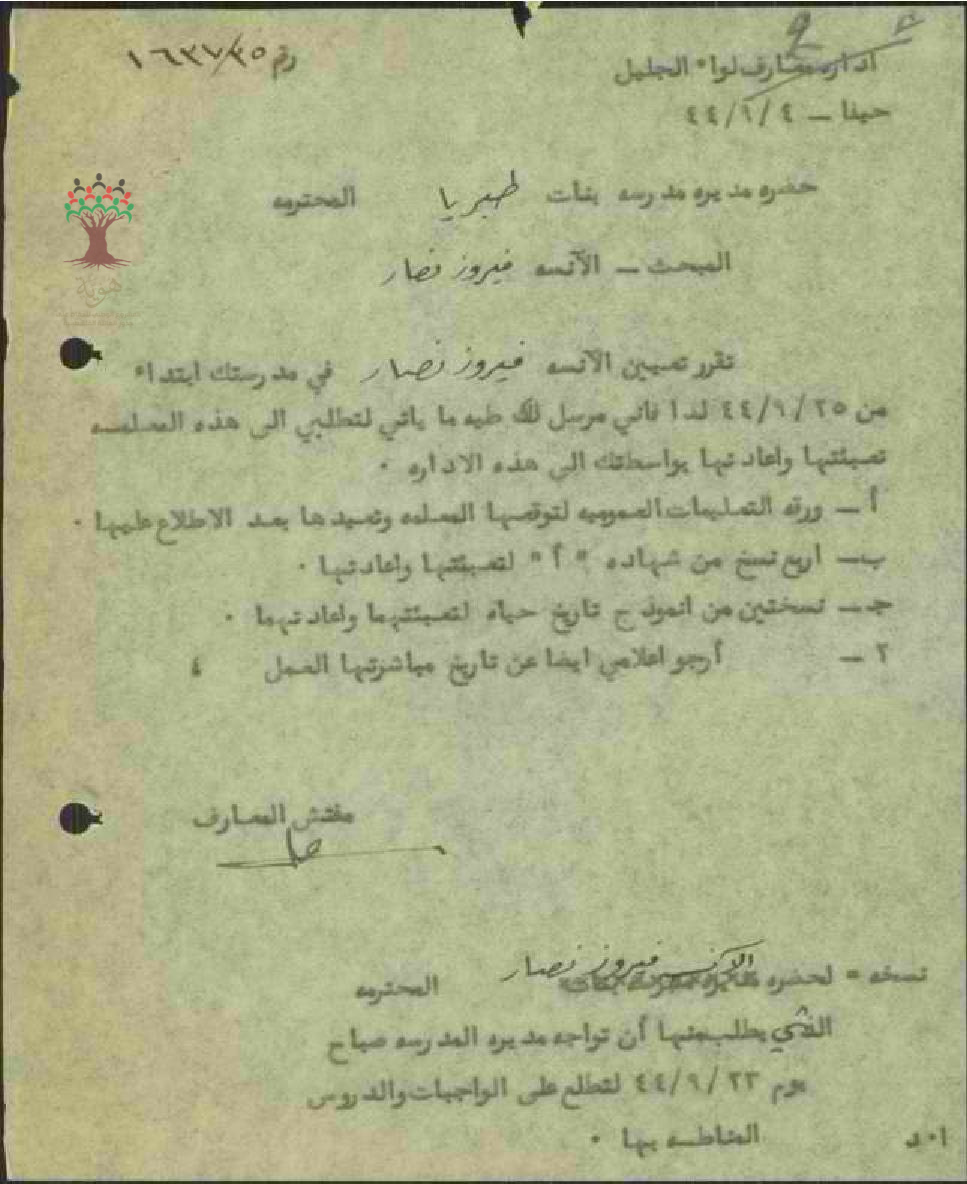 رقم ١٦٣٧/٣٥
اداره معارف لواء الجليل
حيفا – ٤ /٩/ ٤٤
حضره مديره مدرسه بنات طبريا المحترمه
المبحث – الآنسه فيروز نصار
تقرر تعيين الآنسه فيروز نصار في مدرستك ابتداء
من ٢٥ /٩/ ٤٤ لذا فاني مرسل لك طيه ما ياتي لتطلبي الى هذه المعلمه
تعبئتها واعادتها بواسطتك الى هذه الاداره ٠
أ – ورقه التعليمات العموميه لتوقعها المعلمه وتعيدها بعد الاطلاع عليها ٠
ب – اربع نسخ من شهاده " أ " لتعبئتها واعادتها ٠
جـ – نسختين من انموذج تاريخ حياه لتعبئتهما واعادتهما ٠
٢ – أرجو اعلامي ايضا عن تاريخ مباشرتها العمل ٤
مفتش المعارف
نسخه = لحضره الآنسه فيروز نصار المحترمه
يطلب منها أن تواجه مديره المدرسه صباح
يوم ٢٣ /٩/ ٤٤ لتطلع على الواجبات والدروس
المناطه بها ٠
ا٠د
هوية